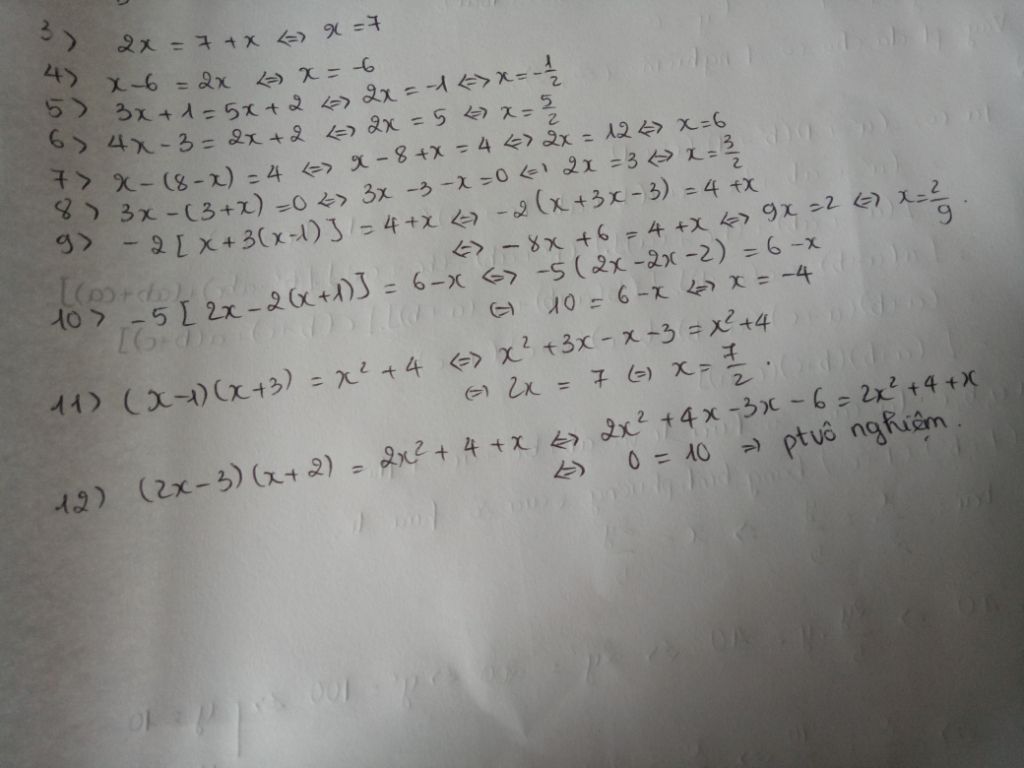 3> 2x = 7 + x ⇔ x = 7
4> x - 6 = 2x ⇔ x = -6
5> 3x + 1 = 5x + 2 ⇔ 2x = -1 ⇔ x = -1/2
6> 4x - 3 = 2x + 2 ⇔ 2x = 5 ⇔ x = 5/2
7> x - (8 - x) = 4 ⇔ x - 8 + x = 4 ⇔ 2x = 12 ⇔ x = 6
8> 3x - (3 + x) = 0 ⇔ 3x - 3 - x = 0 ⇔ 2x = 3 ⇔ x = 3/2
9> -2 [ x + 3(x - 1) ] = 4 + x ⇔ -2 (x + 3x - 3) = 4 + x
⇔ -8x + 6 = 4 + x ⇔ 9x = 2 ⇔ x = 2/9.
10> -5 [ 2x - 2(x + 1) ] = 6 - x ⇔ -5 ( 2x - 2x - 2) = 6 - x
⇔ 10 = 6 - x ⇔ x = -4
11) (x - 1)(x + 3) = x² + 4 ⇔ x² + 3x - x - 3 = x² + 4
⇔ 2x = 7 ⇔ x = 7/2.
12) (2x - 3)(x + 2) = 2x² + 4 + x ⇔ 2x² + 4x - 3x - 6 = 2x² + 4 + x
⇔ 0 = 10 ⇒ pt vô nghiệm.